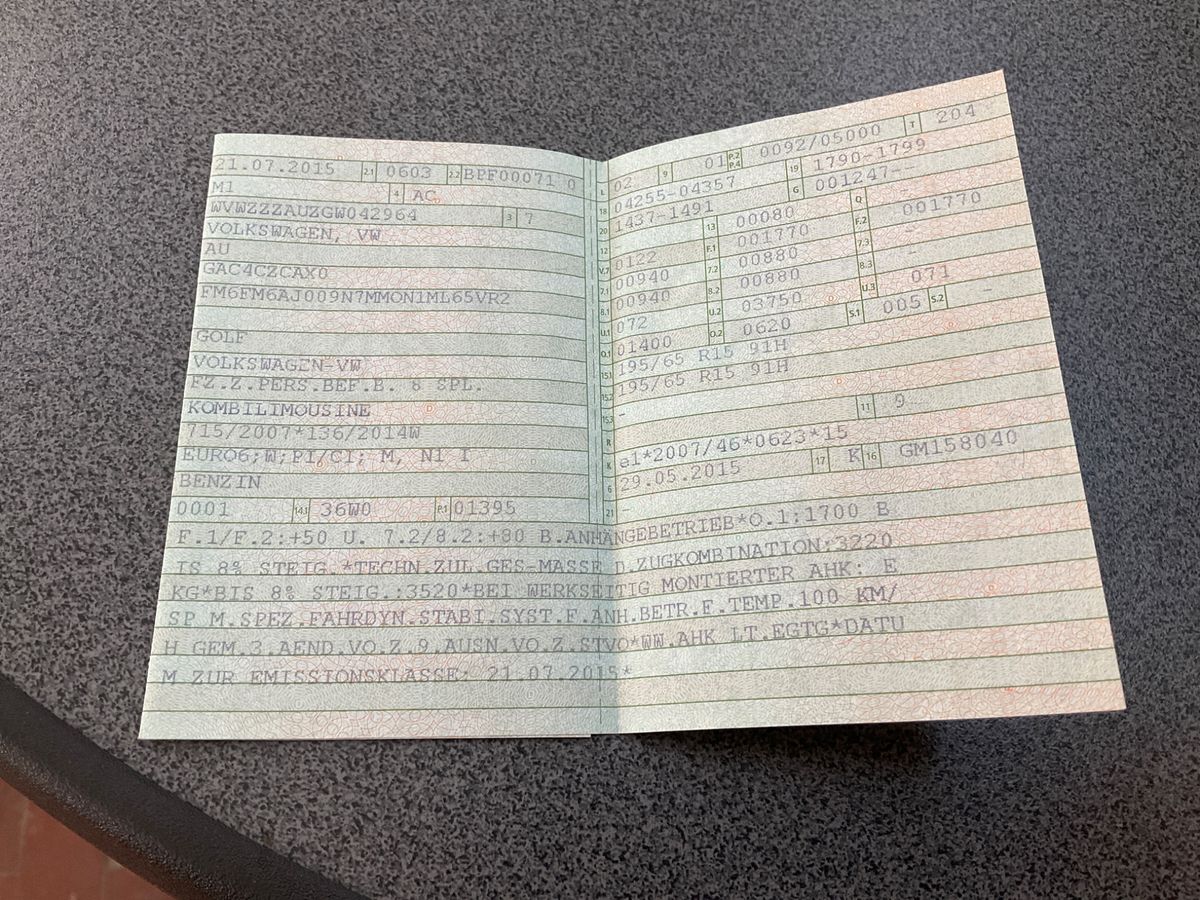 21.07.2015 2.1 0603 2.2 BPF00071 0
M1 4 AC
WVWZZZAUZGW042964 3 7
VOLKSWAGEN, VW
AU
GAC4CZCAX0
FM6FM6AJ009N7MMON1ML65VR2
GOLF
VOLKSWAGEN-VW
FZ.Z.PERS.BEF.B. 8 SPL.
KOMBILIMOUSINE
715/2007*136/2014W
EURO6;W;PI/CI; M, N1 I
BENZIN
0001 14.1 36W0 P.1 01395
L 02 9 01 P.2 P.4 0092/05000 T 204
18 04255-04357 19 1790-1799
20 1437-1491 G 001247--
12 13 00080 Q
V.7 0122 F.1 001770 F.2 001770
7.1 00940 7.2 00880 7.3 -
8.1 00940 8.2 00880 8.3 -
U.1 072 U.2 03750 U.3 071
O.1 01400 O.2 0620 S.1 005 S.2 -
15.1 195/65 R15 91H
15.2 195/65 R15 91H
15.3 -
R 11 9
K e1*2007/46*0623*15
6 29.05.2015 17 K 16 GM158040
21
F.1/F.2:+50 U. 7.2/8.2:+80 B.ANHÄNGEBETRIEB*O.1:1700 B
IS 8% STEIG.*TECHN.ZUL.GES-MASSE D.ZUGKOMBINATION:3220
KG*BIS 8% STEIG.:3520*BEI WERKSEITIG MONTIERTER AHK: E
SP M.SPEZ.FAHRDYN.STABI.SYST.F.ANH.BETR.F.TEMP.100 KM/
H GEM.3.AEND.VO.Z.9.AUSN.VO.Z.STVO*WW.AHK LT.EGTG*DATU
M ZUR EMISSIONSKLASSE: 21.07.2015*